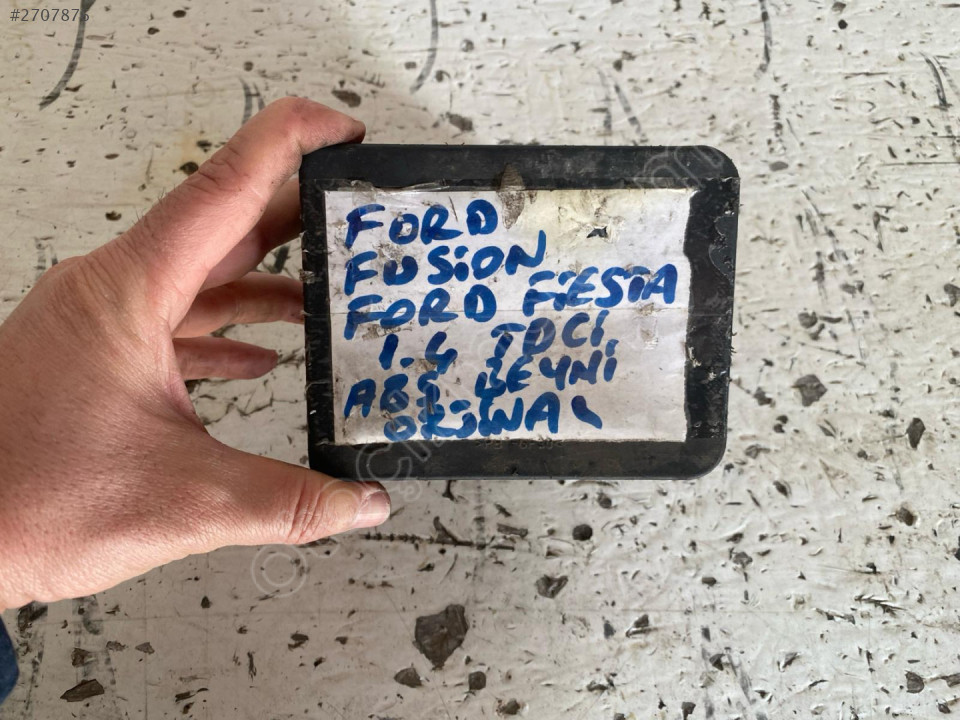 #2707875
FORD
FUSiON
FORD FİESTA
1.4 TDCİ
ABS BEYNİ
ORJİNAL